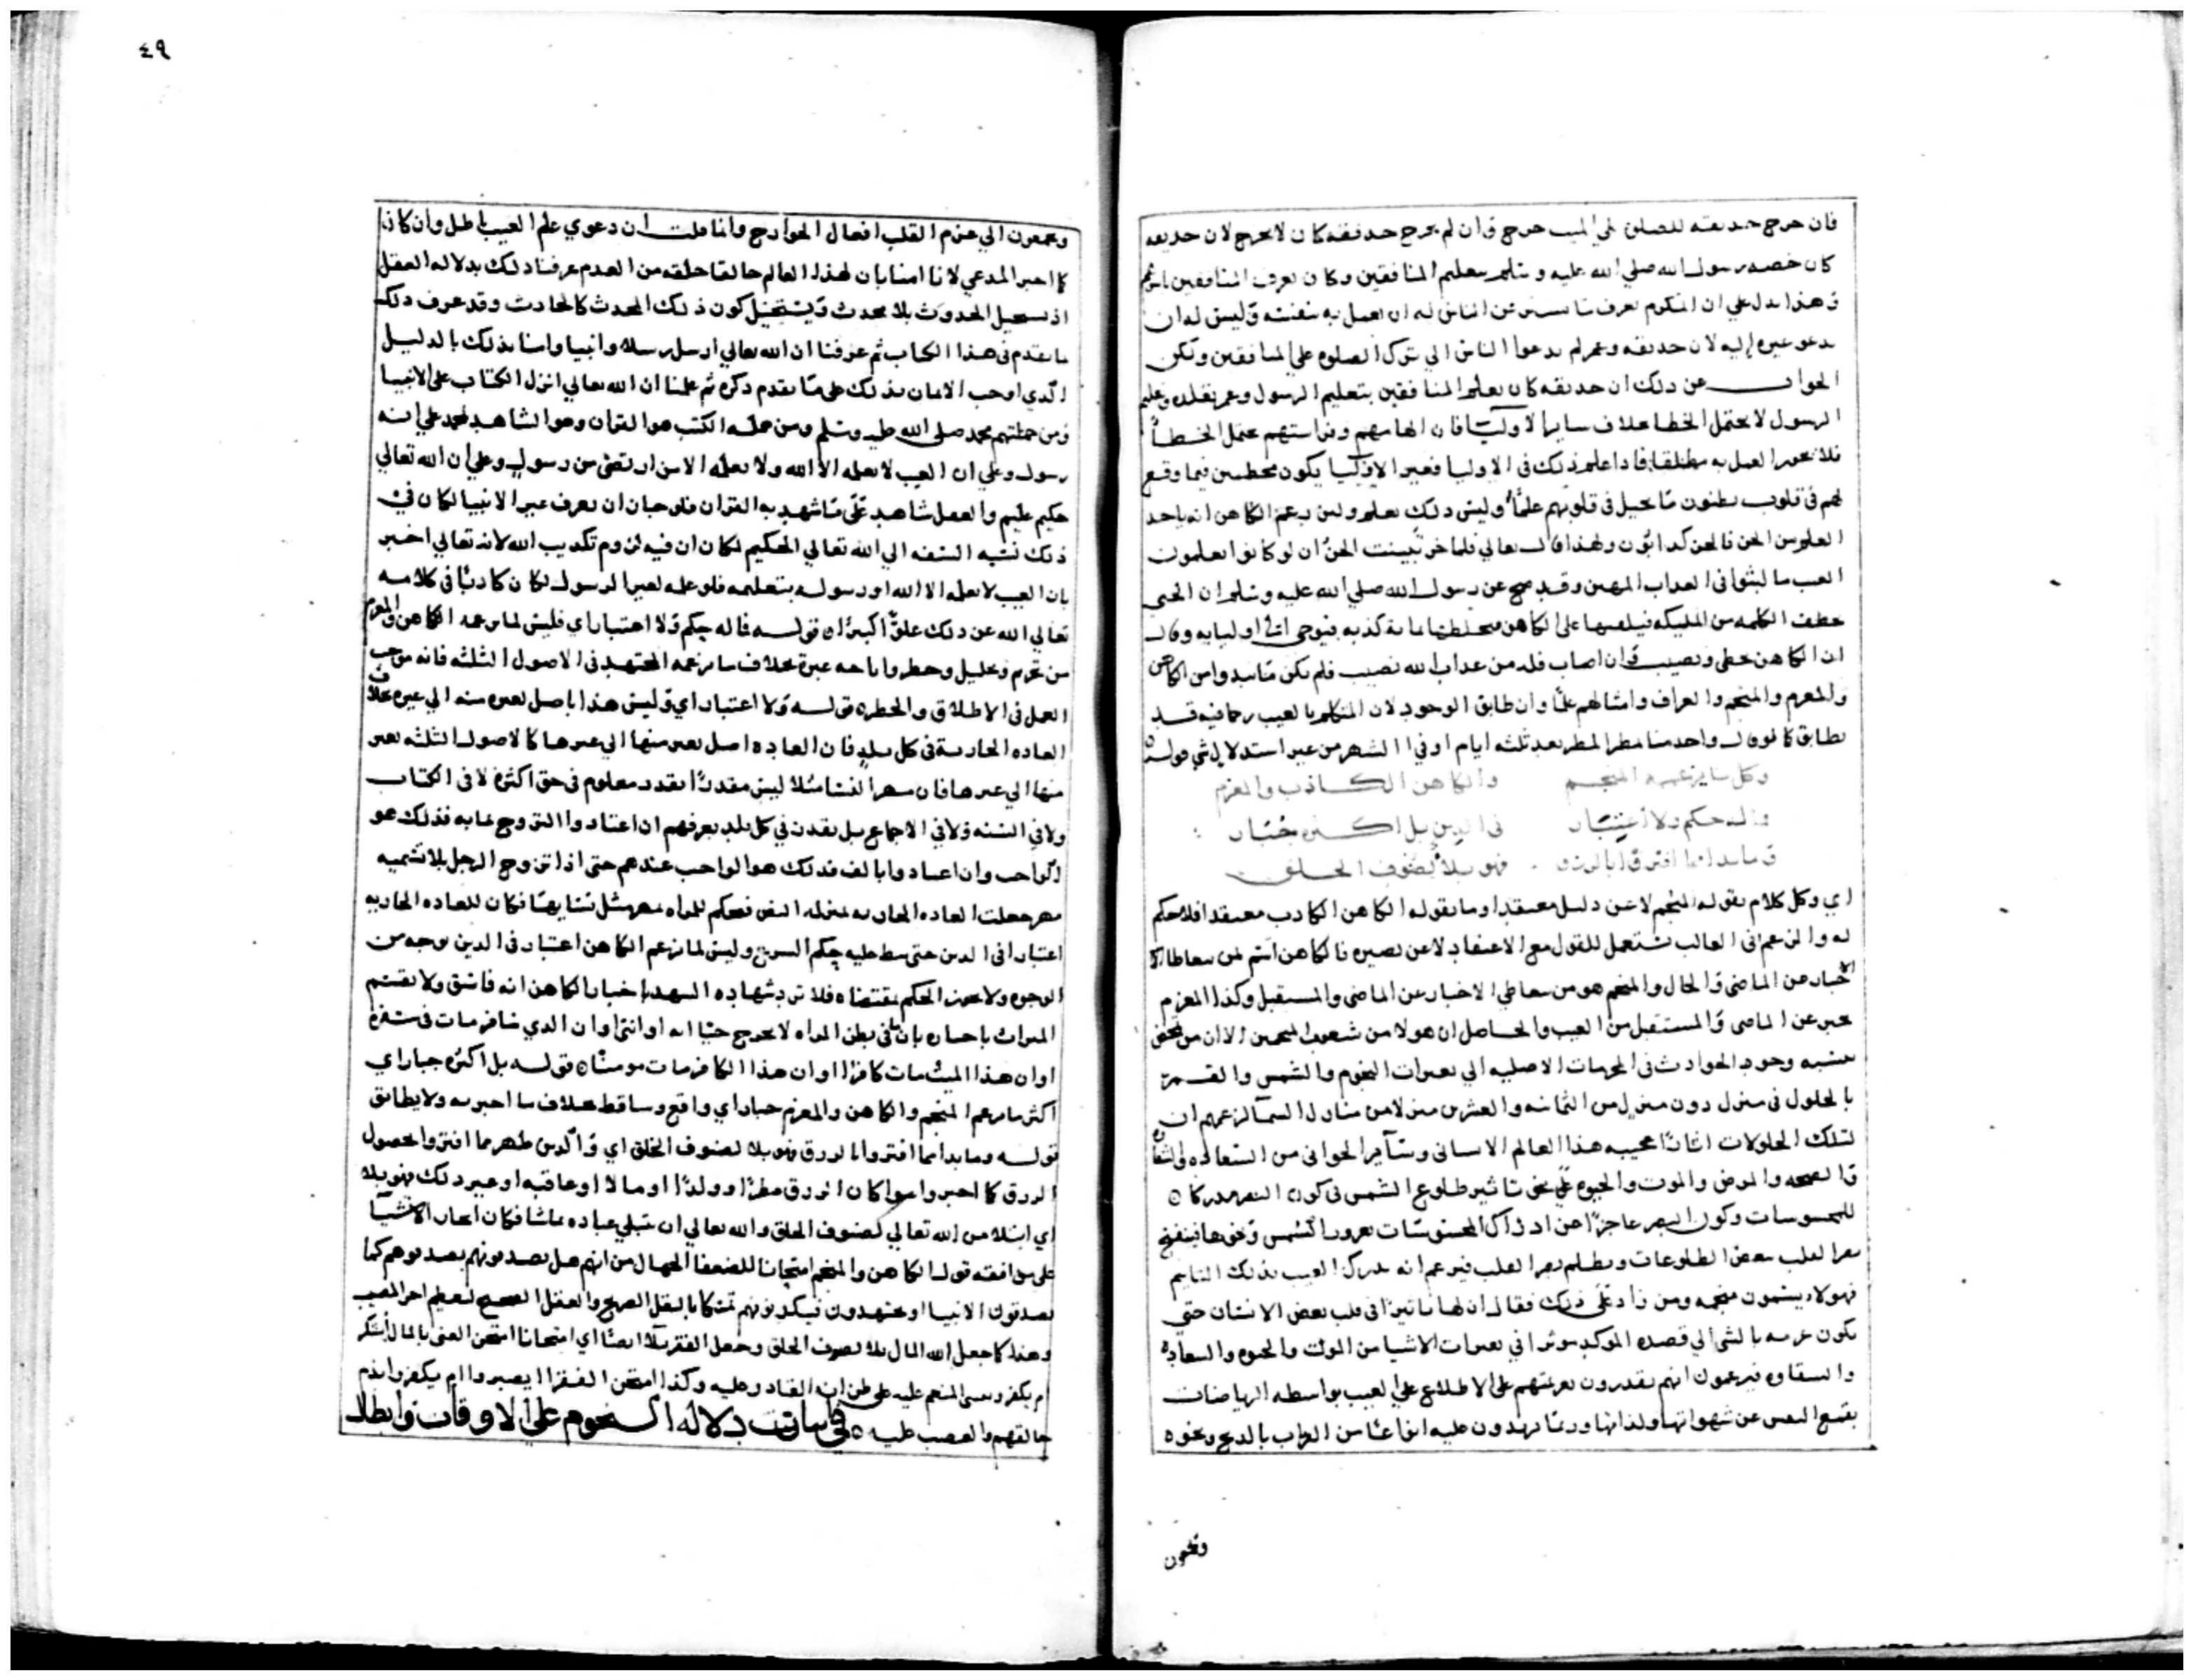 فان خرج حذيفه للصلوه علي الميت خرج وان لم يخرج حذيفه كان لا يخرج لان حذيفه
كان خصه رسول الله صلي الله عليه وسلم بتعليم المنافقين وكان يعرف المنافقين
وهذا يدل علي ان المكرم يعرف ما يستر من الناس له ان يعمل به بنفسه وليس له ان
يدعو غيره إليه لان حذيفه وعمر لم يدعوا الناس الي ترك الصلوه علي المنافقين ولكن
الجواب عن ذلك ان حذيفه كان يعلم المنافقين بتعليم الرسول وعمر بقلده وتعليم
الرسول لا يحتمل الخطا بخلاف ساير الاوليا فان الهامهم وفراستهم يحتمل الخطأ
فلا يجوز العمل به مطلقا فاذا علم ذلك في الاوليا فغير الاوليا يكون مخطيين فيما وقع
لهم في قلوب يظنون ما يخيل في قلوبهم علما وليس ذلك بعلم ولين زعم الكاهن انه ياخذ
العلم من الجن فالجن كذابون ولهذا قال تعالي فلما خر تبينت الجن ان لو كانوا يعلمون
الغيب ما لبثوا في العذاب المهين وقد صح عن رسول الله صلي الله عليه وسلم ان الجني
يخطف الكلمه من المليكه فيلقيها علي الكاهن فيخلطها بمايه كذبه فيوحي الي اوليايه وقال
ان الكاهن يخطي ويصيب وان اصاب فله من عذاب الله نصيب فلم يكن ما يبدوا من الكاهن
والمعزم والمنجم والعراف وامثالهم علما وان طابق الوجود لان المتكلم بالغيب رجما فيه قد
يطابق كما لو قال واحد منا مطر المطر بعد ثلثه ايام او في الشهر من غير استدلال بشي قوله
وكل ما يزعمه المنجم والكاهن الكاذب والمعزم
ماله حكم ولا أعتبار في الدين بل اكثره جبار
وما بدا مما افتروا بالرزق فهو بلاء لصنوف الخلق
اي وكل كلام يقوله المنجم لا عن دليل معتقدا وما يقوله الكاهن الكاذب معتقدا فلا حكم
له والزعم في الغالب يستعمل للقول مع الاعتقاد لا عن بصيره فالكاهن اسم لمن يتعاطا
الاخبار عن الماضي والحال والمنجم هو من يتعاطي الاخبار عن الماضي والمستقبل وكذا المعزم
يخبر عن الماضي والمستقبل من الغيب والحاصل ان هولا من شعوب المنجمين الا ان من
ينسبه وجود الحوادث في الجهات الاصليه الي تغيرات النجوم والشمس والقمر
بالحلول في منزل دون منزل من الثمانيه والعشرين منزلا من منازل السما لزعمهم ان
لتلك الحلولات اثارا عجيبه هذا العالم الانساني وساير الحواني من السعاده والشقاوه
والصحه والمرض والموت والحيوه علي نحو تاثير طلوع الشمس في كون البصر مدركا
للمحسوسات وكون البصر عاجزا عن ادراك المحسوسات بغروب الشمس ونحوها فينفتح
بصر القلب ببعض الطلوعات ويظلم بصر القلب فيزعم انه يدرك الغيب بذلك التاثير
فهولاء يسمون منجمه ومن زاد علي ذلك فقال ان لها تاثيرا في قلب بعض الانسان حتي
يكون عزمه بالشي الي قصده الموكد موثرا في تغيرات الاشيا من الموت والحيوه والسعاده
والشقاوه فيزعمون انهم يقدرون بعزيمتهم علي الاطلاع علي الغيب بواسطه الرياضات
بقمع النفس عن شهواتها ولذاتها وربما يزيدون عليه انواعا من القراب بالذبح ونحوه
ويجمعون
٤٩
ويجمعون الي عزم القلب افعال الجوارح وانما قلت ان دعوي علم الغيب باطل وان كان
كما اخبر المدعي لانا امنا بان لهذا العالم خالقا خلقه من العدم عرفنا ذلك بدلاله العقل
اذ يستحيل الحدوث بلا محدث ويستحيل كون ذلك المحدث كالحادث وقد عرف ذلك
ما تقدم في هذا الكتاب ثم عرفنا ان الله تعالي ارسل رسلا وانبيا وامنا بذلك بالدليل
الذي اوجب الايمان بذلك علي ما تقدم ذكره ثم علمنا ان الله تعالي انزل الكتاب علي الانبيا
ومن جملتهم محمد صلي الله عليه وسلم ومن جمله الكتب هو القران وهو الشاهد لمحمد علي إنه
رسول وعلي ان الغيب لا يعلمه الا الله ولا يعلمه الا من ارتضي من رسول وعلي ان الله تعالي
حكيم عليم والعقل شاهد علي ما شهد به القران فلو جاز ان يعرف غير الانبيا لكان في
ذلك نسبه السفه الي الله تعالي الحكيم لكان ان فيه لزوم تكذيب الله لانه تعالي اخبر
بان الغيب لا يعلمه الا الله او رسوله بتعليمه فلو علمه لغير الرسول لكان كاذبا في كلامه
تعالي الله عن ذلك علوا كبيرا قوله فما له حكم ولا اعتبار اي فليس لما يزعمه الكاهن والمعزم
من تحريم وتحليل وحظر واباحه عبره بخلاف ما يزعمه المجتهد في الاصول الثلثه فانه موجب
العمل في الاطلاق والحظر قوله ولا اعتبار اي وليس هذا باصل يعبر منه الي غيره بخلاف
العاده الجاريه في كل بلد فان العاده اصل يعبر منها الي غيرها كالاصول الثلثه يعبر
منها الي غيرها فان مهر النسا مثلا ليس مقدرا بقدر معلوم في حق اكثره لا في الكتاب
ولا في السنه ولا في الاجماع بل يقدر في كل بلد بعرفهم ان اعتادوا التزوج بمايه فذلك هو
الواجب وان اعتادوا بالف فذلك هو الواجب عندهم حتي اذا تزوج الرجل بلا تسميه
مهر جعلت العاده الجاريه بمنزله النص فيحكم للمراه بمهر مثل نسايها فكان للعاده الجاريه
اعتبارا في الدين حتي يبتنا عليه حكم الشرع وليس لما يزعم الكاهن اعتبار في الدين بوجه من
الوجوه ولا يجوز الحكم بمقتضاه فلا ترد شهاده الشهد بإخبار الكاهن انه فاسق ولا يقسم
الميراث باخباره بان ما في بطن المراه لا يخرج حيا انه او انثي او ان الذي سافر مات في سفره
او ان هذا الميت مات كافرا او ان هذا الكافر مات مومنا قوله بل اكثره جبار اي
اكثر ما يزعم المنجم والكاهن والمعزم جبار اي واقع وساقط بخلاف ما اخبر به ولا يطابق
قوله وما بدا مما افتروا بالرزق فهو بلاء لصنوف الخلق اي والذين ظهر مما افتروا بحصول
الرزق كما اخبروا سوا كان الرزق مطرا او ولدا او مالا او عاقبه او غير ذلك فهو بلاء
اي ابتلا من الله تعالي لصنوف الخلق والله تعالي ان يبتلي عباده بما شا فكان ايجاد الاشيا
علي موافقه قول الكاهن والمنجم امتحانا للضعفا الجهال من انهم هل يصدقونهم تصديقهم كما
يصدقون الانبيا او يجتهدون فيكذبونهم تمسكا بالنقل الصريح والعقل الصحيح ليعظم اجر المصيب
وهذا كما جعل الله المال بلاء لصنوف الخلق وجعل الفقر بلاء ايضا اي امتحانا امتحن الغني بالمال أيشكر
ام يكفر وينسي المنعم عليه علي ظن انه القادر عليه وكذا امتحن الفقرا ايصبروا ام يكفروا بذم
خالقهم والغضب عليه في بيان ترتب دلاله النجوم علي الاوقات وابطال